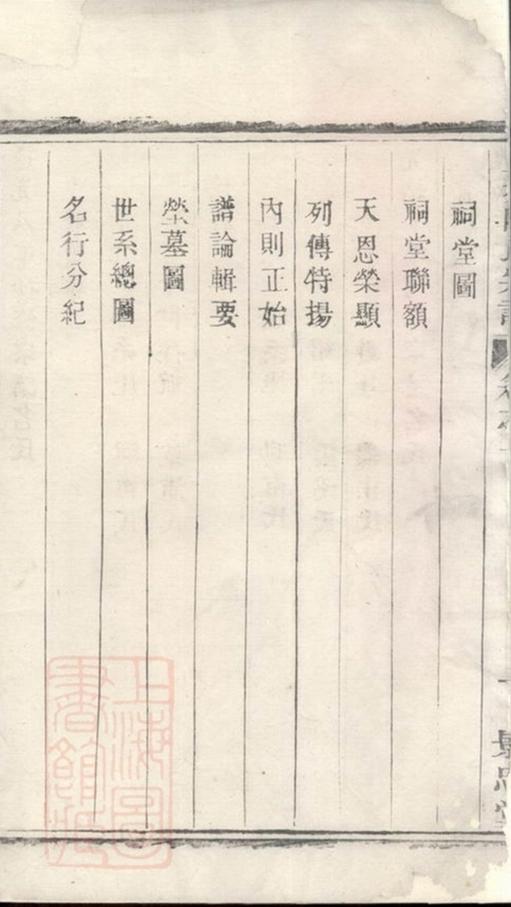 祠堂圖
祠堂聯額
天恩榮顯
列傳特揚
內則正始
譜論輯要
塋墓圖
世系總圖
名行分紀
上海圖
書館藏